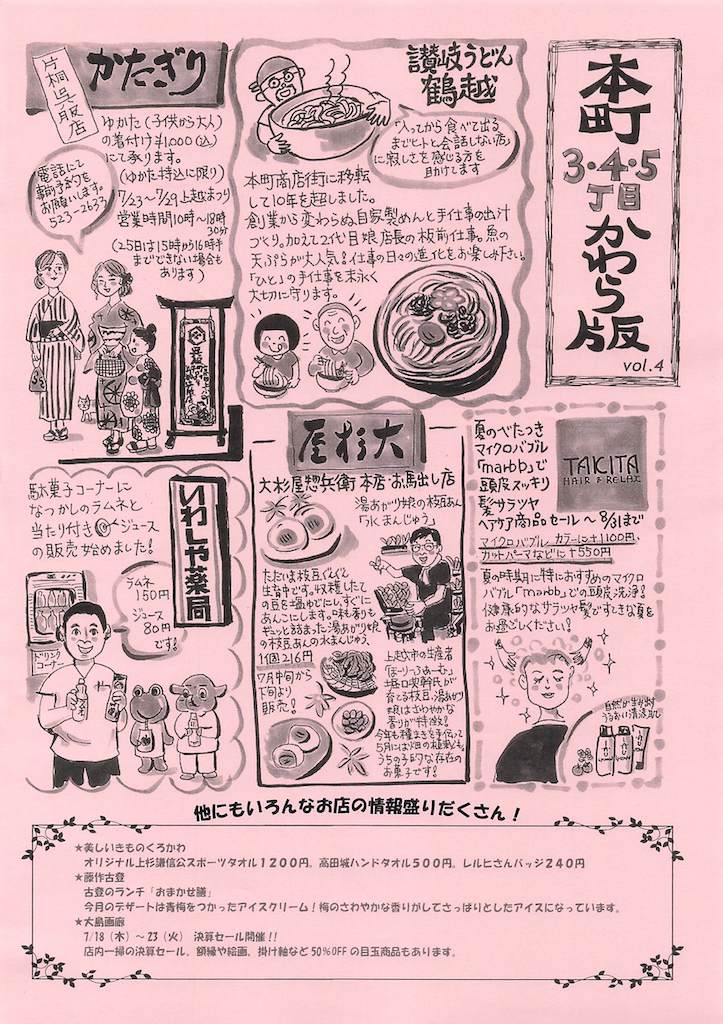 本町
3・4・5
丁目
かわら版
vol.4
讃岐うどん
鶴越
「入ってから食べて出る
までヒトと会話しない店」
に寂しさを感じる方を
助けてます
本町商店街に移転
して10年を超しました。
創業から変わらぬ自家製めんと手仕事の出汁
づくり。加えて2代目娘店長の板前仕事。魚の
天ぷらが大人気!仕事の日々の進化をお楽しみ下さい。
「ひと」の手仕事を末永く
大切に守ります。
かたぎり
片桐呉服店
ゆかた(子供から大人)
の着付け¥1,000(込)
にて承ります。
(ゆかた持込に限り)
7/23〜7/29上越まつり
営業時間10時〜18時
30分
(25日は15時から16時半
までできない場合も
あります)
電話にて
事前予約を
お願いします。
523-2633
TAKITA
HAIR & RELAX
夏のべたつき
マイクロバブル
「marbb」で
頭皮スッキリ
髪サラツヤ
ヘアケア商品セール〜8/31まで
マイクロバブル カラーに+1100円、
カットパーマなどに+550円
夏の時期に特におすすめのマイクロ
バブル「marbb」での頭皮洗浄!
健康的なサラツヤ髪ですてきな夏を
お過ごしください!
自然が生み出す
うるおい清涼感
大杉屋
大杉屋惣兵衛 本店・お馬出し店
湯あがり娘の枝豆あん
「水まんじゅう」
ただいま枝豆ぐんぐん
生育中です。収穫したて
の豆を塩ゆでにし、すぐに
あんこにします。味も香りも
ギュッと詰まった湯あがり娘
の枝豆あんの水まんじゅう、
1個216円
7月中旬から
下旬より
販売!
上越市の生産者
「ほーりーふぁーむ」
土垣口央幹氏が
育てる枝豆、湯あがり
娘はさわやかな
香りが特徴!
今年も種まきを手伝って
5月には畑の植栽も。
うちの子的な存在の
お菓子です!
いわしや薬局
駄菓子コーナーに
なつかしのラムネと
当たり付きジュース
の販売始めました!
ラムネ
150円
ジュース
80円
です!
ドリンク
コーナー
他にもいろんなお店の情報盛りだくさん!
★美しいきものくろかわ
オリジナル上杉謙信公スポーツタオル1200円。高田城ハンドタオル500円。レルヒさんバッジ240円
★藤作古登
古登のランチ「おまかせ膳」
今月のデザートは青梅をつかったアイスクリーム!梅のさわやかな香りがしてさっぱりとしたアイスになっています。
★大島画廊
7/18(木)〜23(火) 決算セール開催!!
店内一掃の決算セール。額縁や絵画、掛け軸など50%OFFの目玉商品もあります。